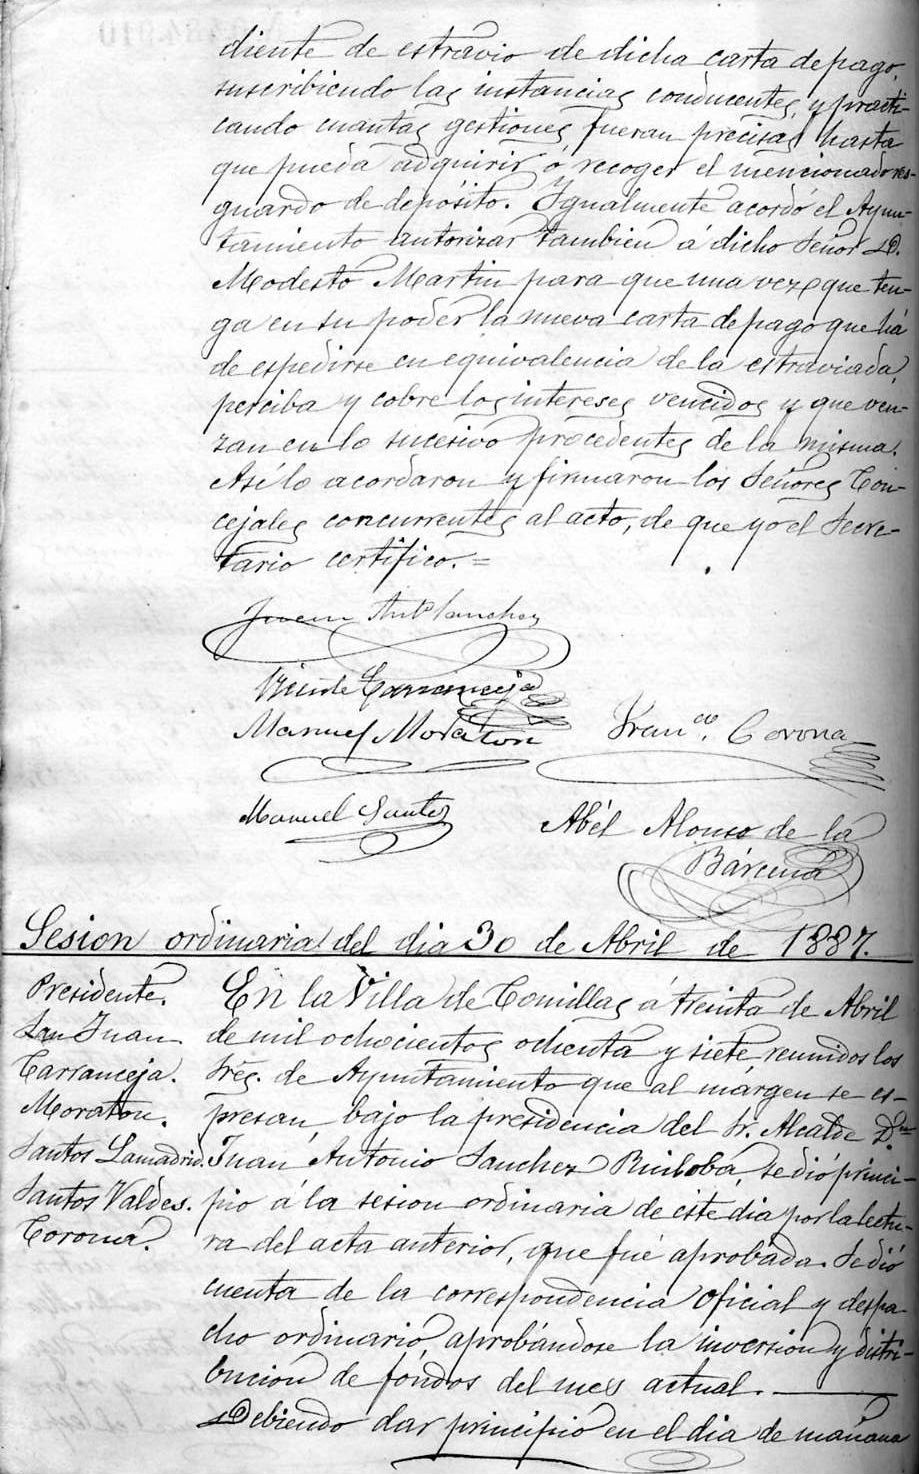 diente de estravio de dicha carta de pago,
suscribiendo las instancias conducentes, y practi-
cando cuantas gestiones fueran precisas hasta
que pueda adquirir ó recoger el mencionado res-
guardo de depósito. Igualmente acordó el Ayun-
tamiento autorizar tambien á dicho Señor D.
Modesto Martin para que una vez que ten-
ga en su poder la nueva carta de pago que há
de espedirse en equivalencia de la estraviada,
perciba y cobre los intereses vencidos y que ven-
zan en lo sucesivo procedentes de la misma.
Así lo acordaron y firmaron los Señores Con-
cejales concurrentes al acto, de que yo el Secre-
tario certifico.=
Juan Antº Sanchez
Vicente Carranceja
Manuel Moraton Franco. Corona
Manuel Santos Abél Alonso de la
Bárcena
Sesion ordinaria del dia 30 de Abril de 1887.
Presidente.
San Juan
Carranceja.
Moraton.
Santos Lamadrid.
Santos Valdes.
Corona.
En la Villa de Comillas á treinta de Abril
de mil ochocientos ochenta y siete, reunidos los
Sres. de Ayuntamiento que al margen se es-
presan, bajo la presidencia del Sr. Alcalde Dn
Juan Antonio Sanchez Ruiloba, se dió princi-
pio á la sesion ordinaria de este dia por la lectu-
ra del acta anterior, que fué aprobada. Se dió
cuenta de la correspondencia oficial y despa-
cho ordinario, aprobándose la inversion y distri-
bucion de fondos del mes actual.
Debiendo dar principio en el dia de mañana